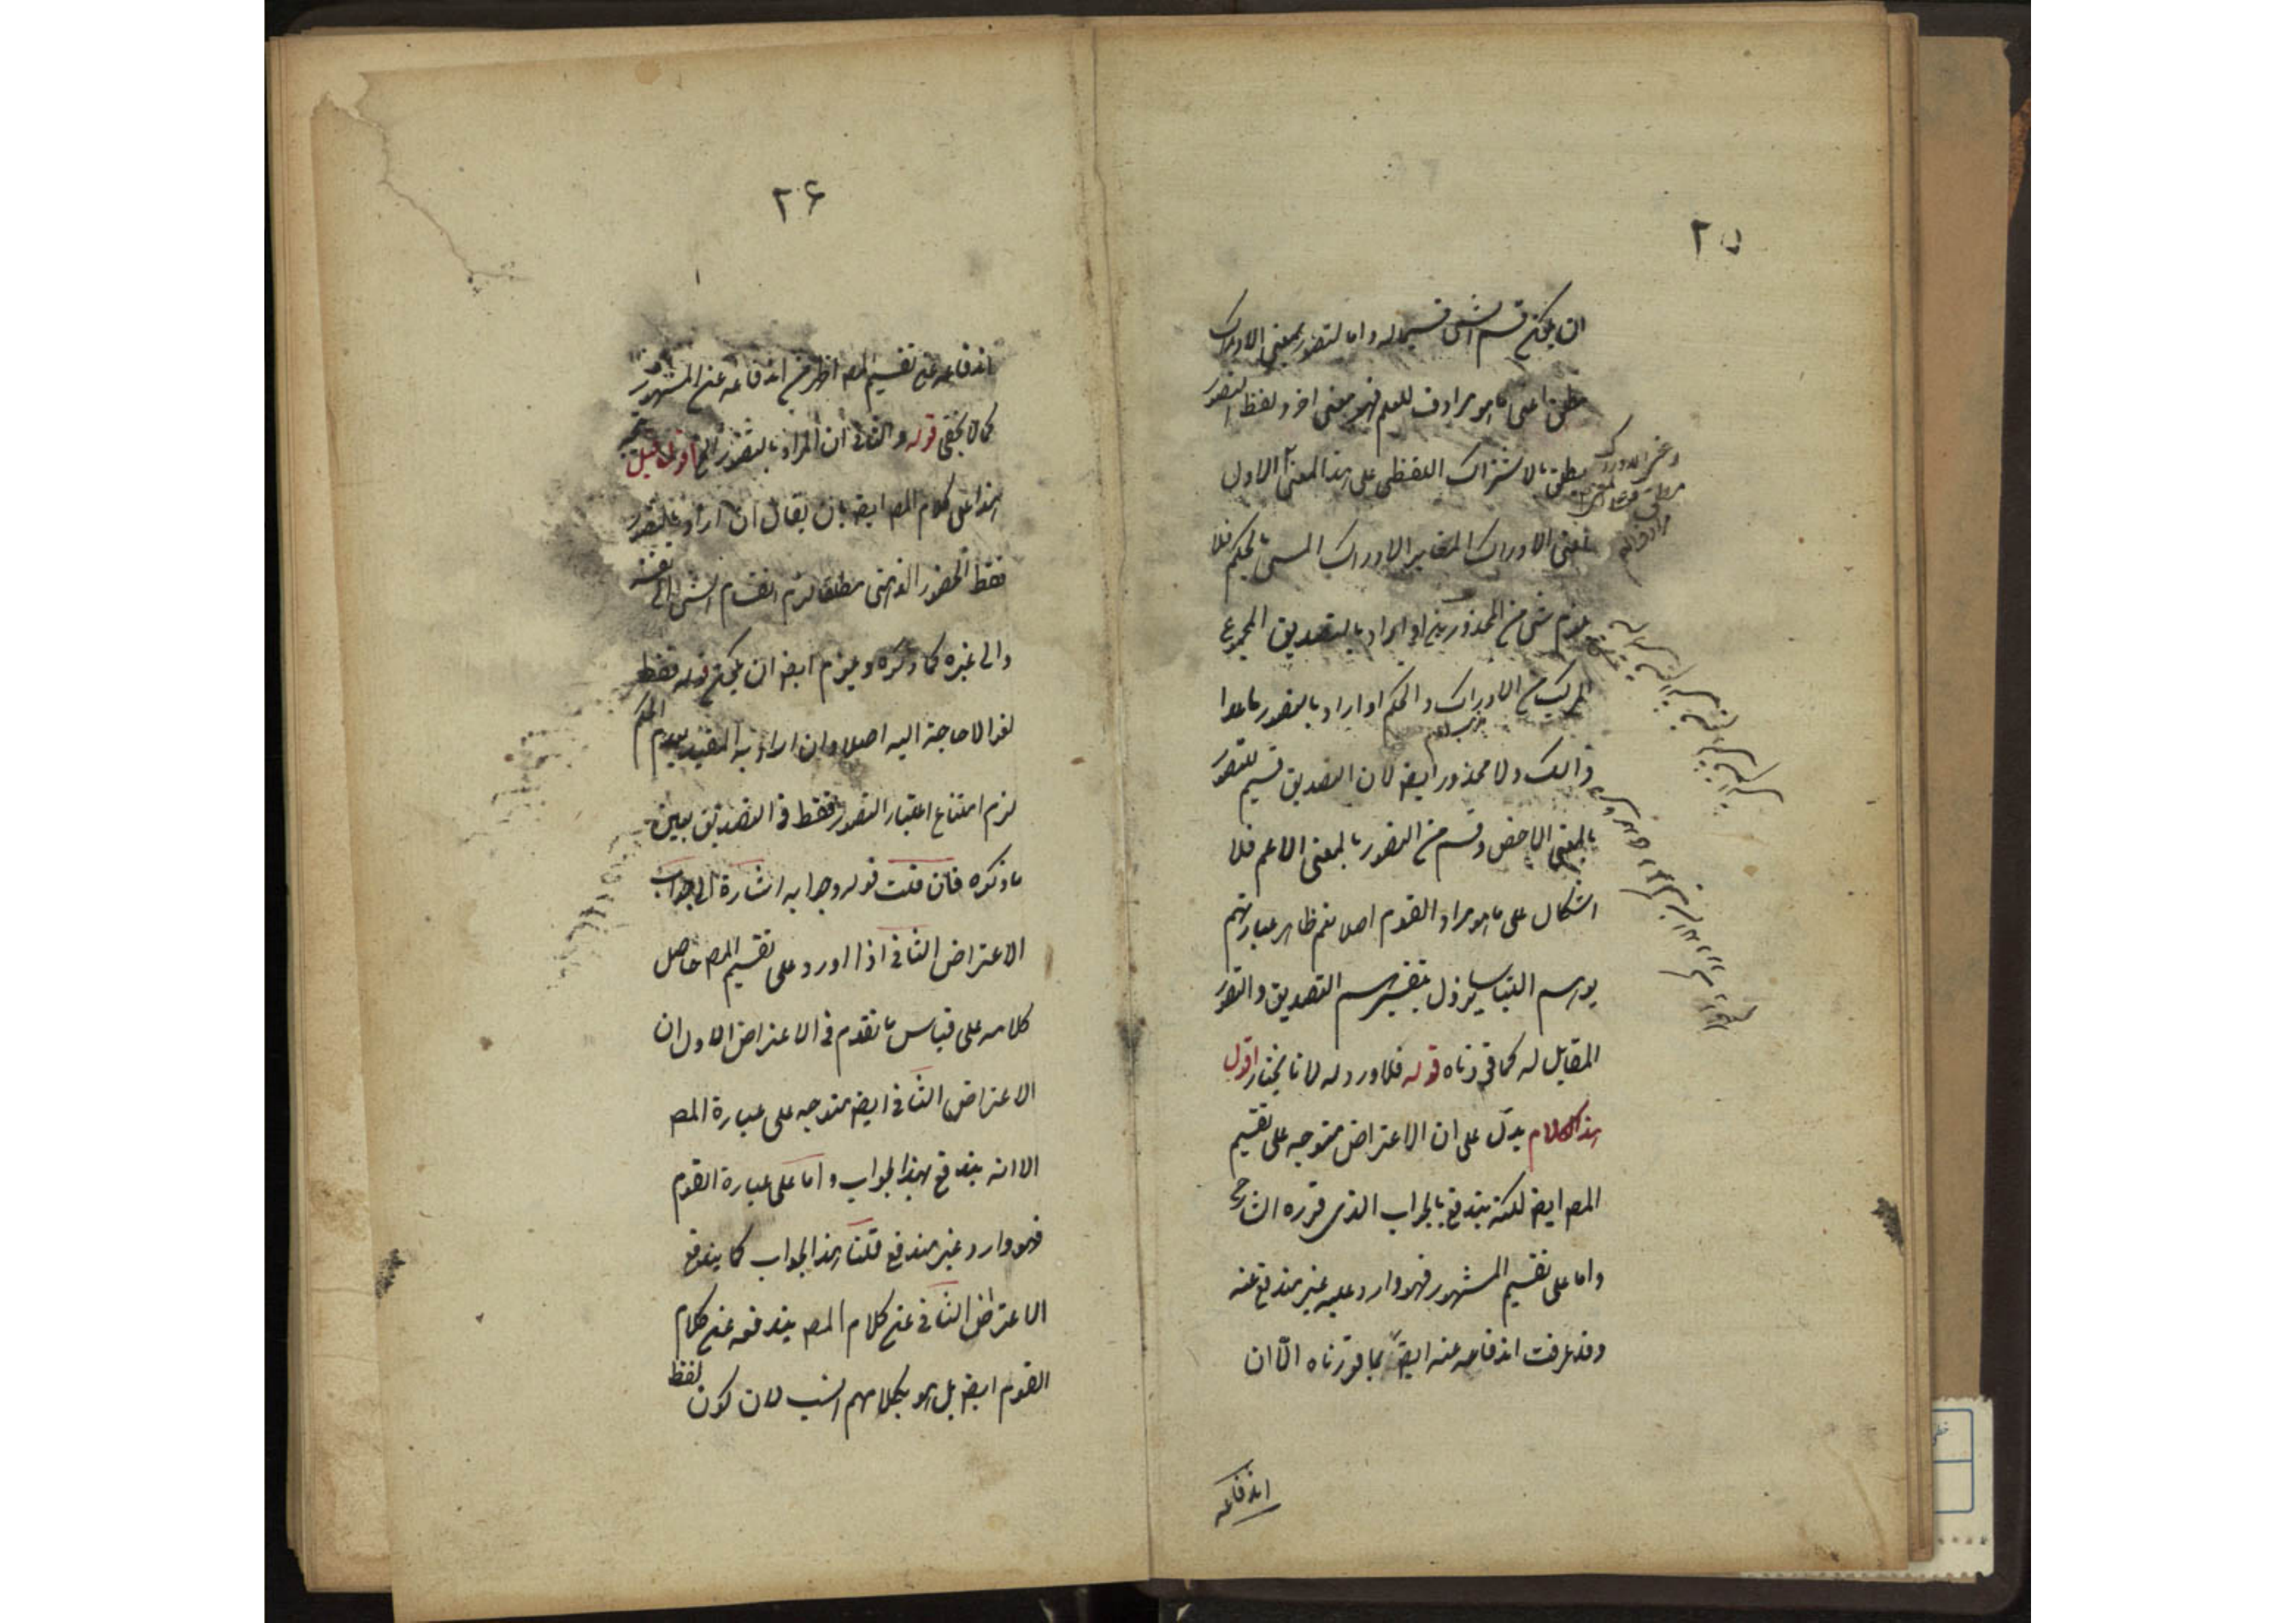 ٢٥
ان يكون قسم الشى قسيما له واما التصور بمعنى الادراك
مطلقا اعنى ما هو مرادف للعلم فهو معنى اخر ولفظ التصور
يطلق بالاشتراك اللفظى على هذا المعنى الاول
اعنى الادراك المغاير الادراك المسمى بالحكم فلا
يلزم شى من المحذورين او اراد بالتصديق المجموع
المركب من الادراك والحكم او اراد بالتصور ما عدا
ذالك ولا محذور ايض لان التصديق قسيم للتصور
بالمعنى الاخص وقسم من التصور بالمعنى الاعم فلا
اشكال على ما هو مراد القوم اصلا نعم ظاهر عبارتهم
يوهم التباسا يزول بتفسيرهم التصديق والتصور
المقابل له كما قررناه قوله فلا ورود له لانا نختار اقول
هذا الكلام يدل على ان الاعتراض متوجه على تقسيم
المص ايض لكنه يندفع بالجواب الذى قرره الشارح
واما على تقسيم المشهور فهو وارد عليه غير مندفع عنه
وقد عرفت اندفاعه عنه ايضً بما قررناه الّا ان
اندفاعه
٢۶
اندفاعه عن تقسيم المص اظهر من اندفاعه عن المشهور
كما لا يخفى قوله والثانى ان المراد بالتصور الخ اقول قيل
هذا على كلام المص ايض بان يقال ان اراد بالتصور
فقط الحضور الذهنى مطلقا لزم انقسام الشى الى نفسه
والى غيره كما ذكره ويلزم ايض ان يكون قوله فقط
لغوا لا حاجة اليه اصلا وان اراد به المقيد بعدم الحكم
لزم امتناع اعتبار التصور فقط فى التصديق بعين
ما ذكره فان قلت قوله وجوابه اشارة الى جواب
الاعتراض الثانى اذا اورد على تقسيم المص حاصل
كلامه على قياس ما تقدم فى الاعتراض الاول ان
الاعتراض الثانى ايض متوجه على عبارة المص
الا انه يندفع بهذا الجواب واما على عبارة القوم
فهو وارد غير مندفع قلنا هذا الجواب كما يندفع
الاعتراض الثانى عن كلام المص يندفعه عن كلام
القوم ايض بل هو بكلامهم انسب لان كون لفظ